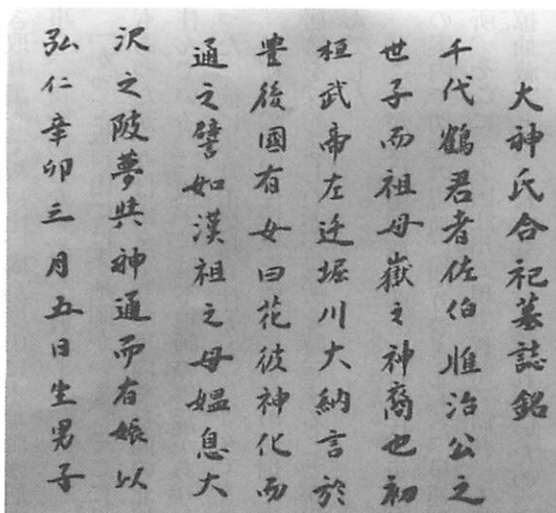 大神氏合祀墓誌銘
千代鶴君者佐伯惟治公之
世子而祖母嶽之神裔也初
桓武帝左迁堀川大納言於
豊後國有女曰花彼神化而
通之譬如漢祖之母媼息大
沢之陂夢與神通而有娠以
弘仁辛卯三月五日生男子